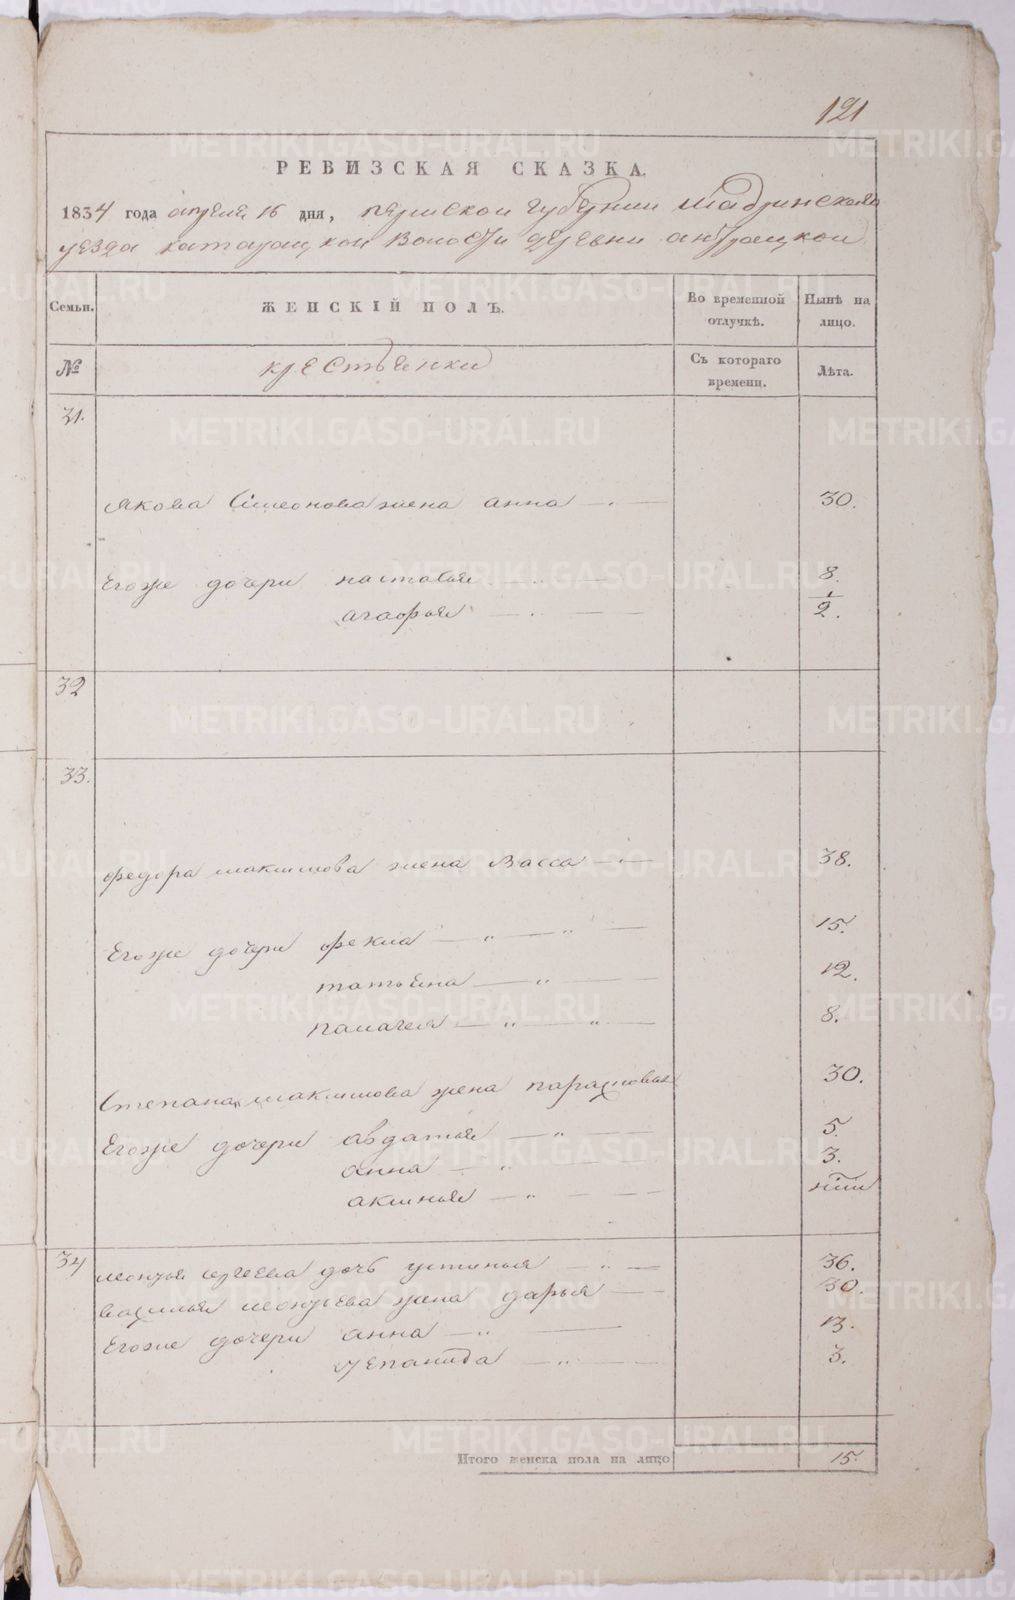 121
РЕВИЗСКАЯ СКАЗКА.
1834 года апреля 16 дня, пермской губернии Шадринскаго
уезда катайцкой волости деревни
Семьи.
ЖЕНСКІЙ ПОЛЪ.
Во временной отлучкѣ.
Нынѣ на лицо.
№
крестьянки
Съ котораго времени.
Лѣта.
31.
Якова Симеонова жена анна 30.
Егоже дочери настасья 8.
агафья 1/2.
32
33.
федора максимова жена Васса 38.
Егоже дочери фекла 15.
татьяна 12.
палагея 8.
Степана максимова жена парасковья 30.
Егоже дочери авдатья 5.
анна 3.
аксинья
34
леонтья сергеева дочь устинья 36.
василья леонтьева жена дарья 30.
Егоже дочери анна 13.
степанида 3.
Итого женска пола на лицо 15.
METRIKI.GASO-URAL.RU